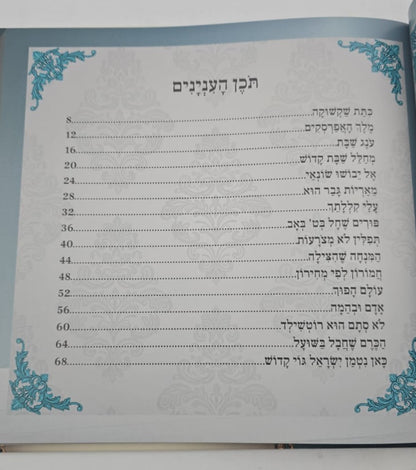 תֹּכֶן הָעִנְיָנִים
כִּתַּת שַׁקְשׁוּקָה 8
מֶלֶךְ הָאֲפַרְסְקִים 12
עֹנֶג שַׁבָּת 16
מְחַלֵּל שַׁבָּת קָדוֹשׁ 20
אַל יֵבוֹשׁוּ שׂוֹנְאַי 24
מֵאֲרָיוֹת גָּבַר הוּא 28
עָלַי קִלְלָתְךָ 32
פּוּרִים שֶׁחָל בְּט' בְּאָב 36
תְּפִלִּין לֹא מְצֹרָעוֹת 40
הַמִּנְחָה שֶׁהִצִּילָה 44
חֲמוֹרוֹן לְפִי מְחִירוֹן 48
עוֹלָם הָפוּךְ 52
אָדָם וּבְהֵמָה 56
לֹא סְתָם הוּא רוֹטְשִׁילְד 60
הַכֶּרֶם שֶׁחֻבַּל בַּשּׁוּעָל 64
כָּאן נִטְמַן יִשְׂרָאֵל גּוֹי קָדוֹשׁ 68